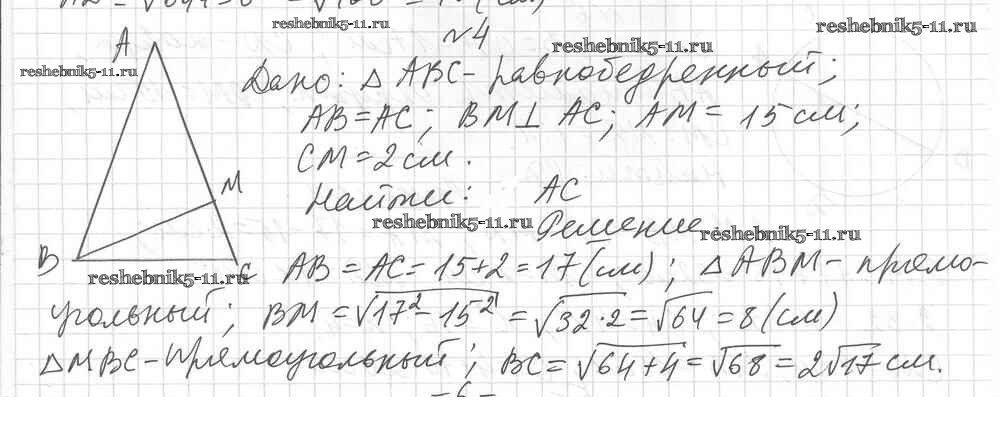 reshebnik5-11.ru
N4
reshebnik5-11.ru
reshebnik5-11.ru
A
reshebnik5-11.ru
Дано: △ ABC - равнобедренный;
AB = AC; BM ⊥ AC; AM = 15 см;
CM = 2 см.
M
Найти: AC
reshebnik5-11.ru
Решение
reshebnik5-11.ru
B
reshebnik5-11.ru
C
AB = AC = 15+2 = 17 (см); △ ABM - прямо-
угольный; BM = √17² - 15² = √32·2 = √64 = 8 (см)
△ MBC - прямоугольный; BC = √64+4 = √68 = 2√17 см.